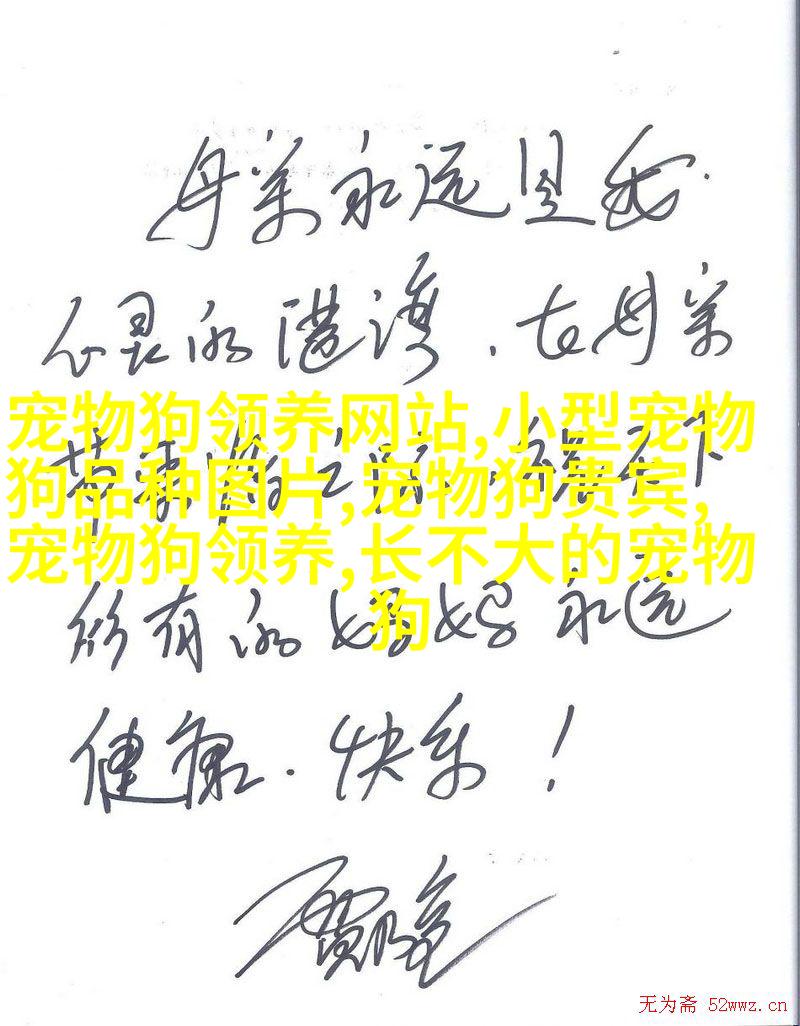 母亲永远是我
心灵的港湾.在母亲
宠物狗领养网站,小型宠物
狗品种图片,宠物狗贵宾,
宠物狗领养,长不大的宠物
狗
下
所有的妈妈永远
健康.快乐!
无为斋 52wwz.cn